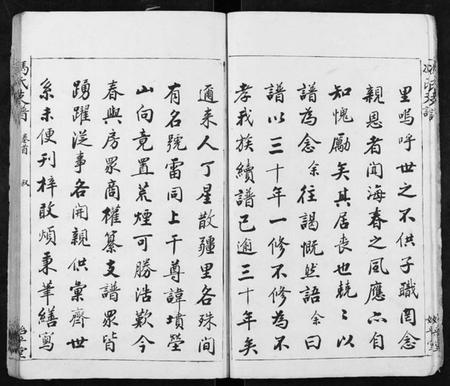 里嗚呼世之不供子職罔念
親恩者聞海春之風應亦自
知愧勵矣其居喪也兢兢以
譜為念余往謁慨然語余曰
譜以三十年一修不修為不
孝我族續譜已逾三十年矣
邇来人丁星散疆里各殊間
有名號雷同上干尊諱墳塋
山向竟置荒煙可勝浩歎今
春與房眾商權纂支譜眾皆
踴躍從事各開親供彙齊世
系未便刊梓敢煩秉筆繕寫
馮氏支譜 卷首 叙